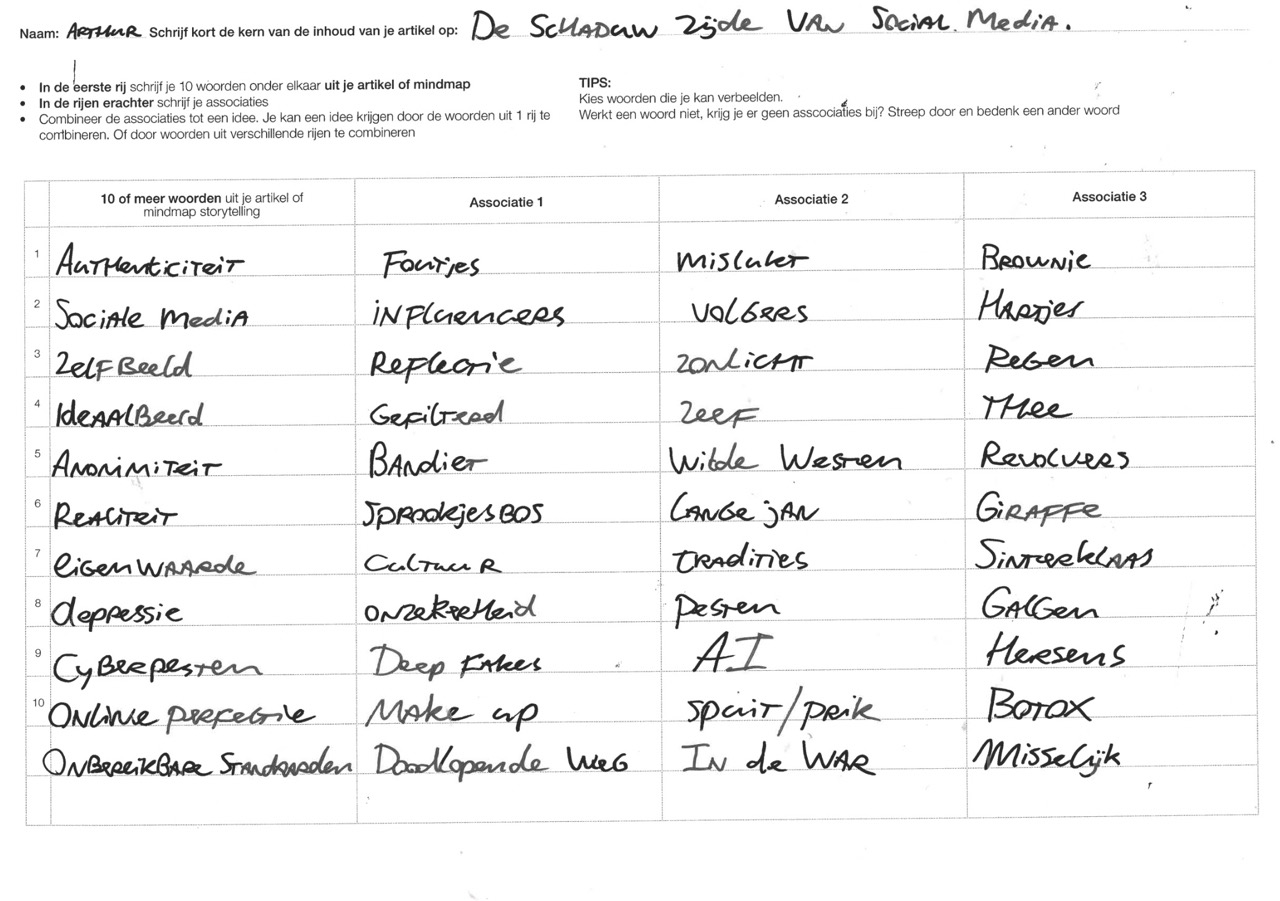 Naam: ARTHUR Schrijf kort de kern van de inhoud van je artikel op: De SCHADUW zijde VAN SOCIAL MediA.
• In de eerste rij schrijf je 10 woorden onder elkaar uit je artikel of mindmap
• In de rijen erachter schrijf je associaties
• Combineer de associaties tot een idee. Je kan een idee krijgen door de woorden uit 1 rij te
combineren. Of door woorden uit verschillende rijen te combineren
TIPS:
Kies woorden die je kan verbeelden.
Werkt een woord niet, krijg je er geen asscociaties bij? Streep door en bedenk een ander woord
10 of meer woorden uit je artikel of
mindmap storytelling
Associatie 1
Associatie 2
Associatie 3
1 AuTHenticiTeiT Foutjes mislukt BROWNie
2 Sociale mediA iNFluencers VOLGERS HARTjes
3 ZelFBeeld ReFlectie ZONLiCHT ReGen
4 IdeAAlBeeld GeFilTeerd Zeef THee
5 ANONiMiTeiT BANdieT Wilde WesTen RevolveRS
6 ReALiTeiT SPROOKjesBOS LANGe jAN GiRAFFe
7 eiGenWAARde CulTuuR TRAdiTies SiNTeRklAAS
8 depressie ONZekeRHeid PesTen GALGen
9 CyBeRpesTen Deep FAkes AI HeRsens
10 ONLiNe perfectie MAke up SpuiT/PRik BOTOX
ONBeReikBARe STANdAARden Doodlopende WeG IN de WAR Misselijk